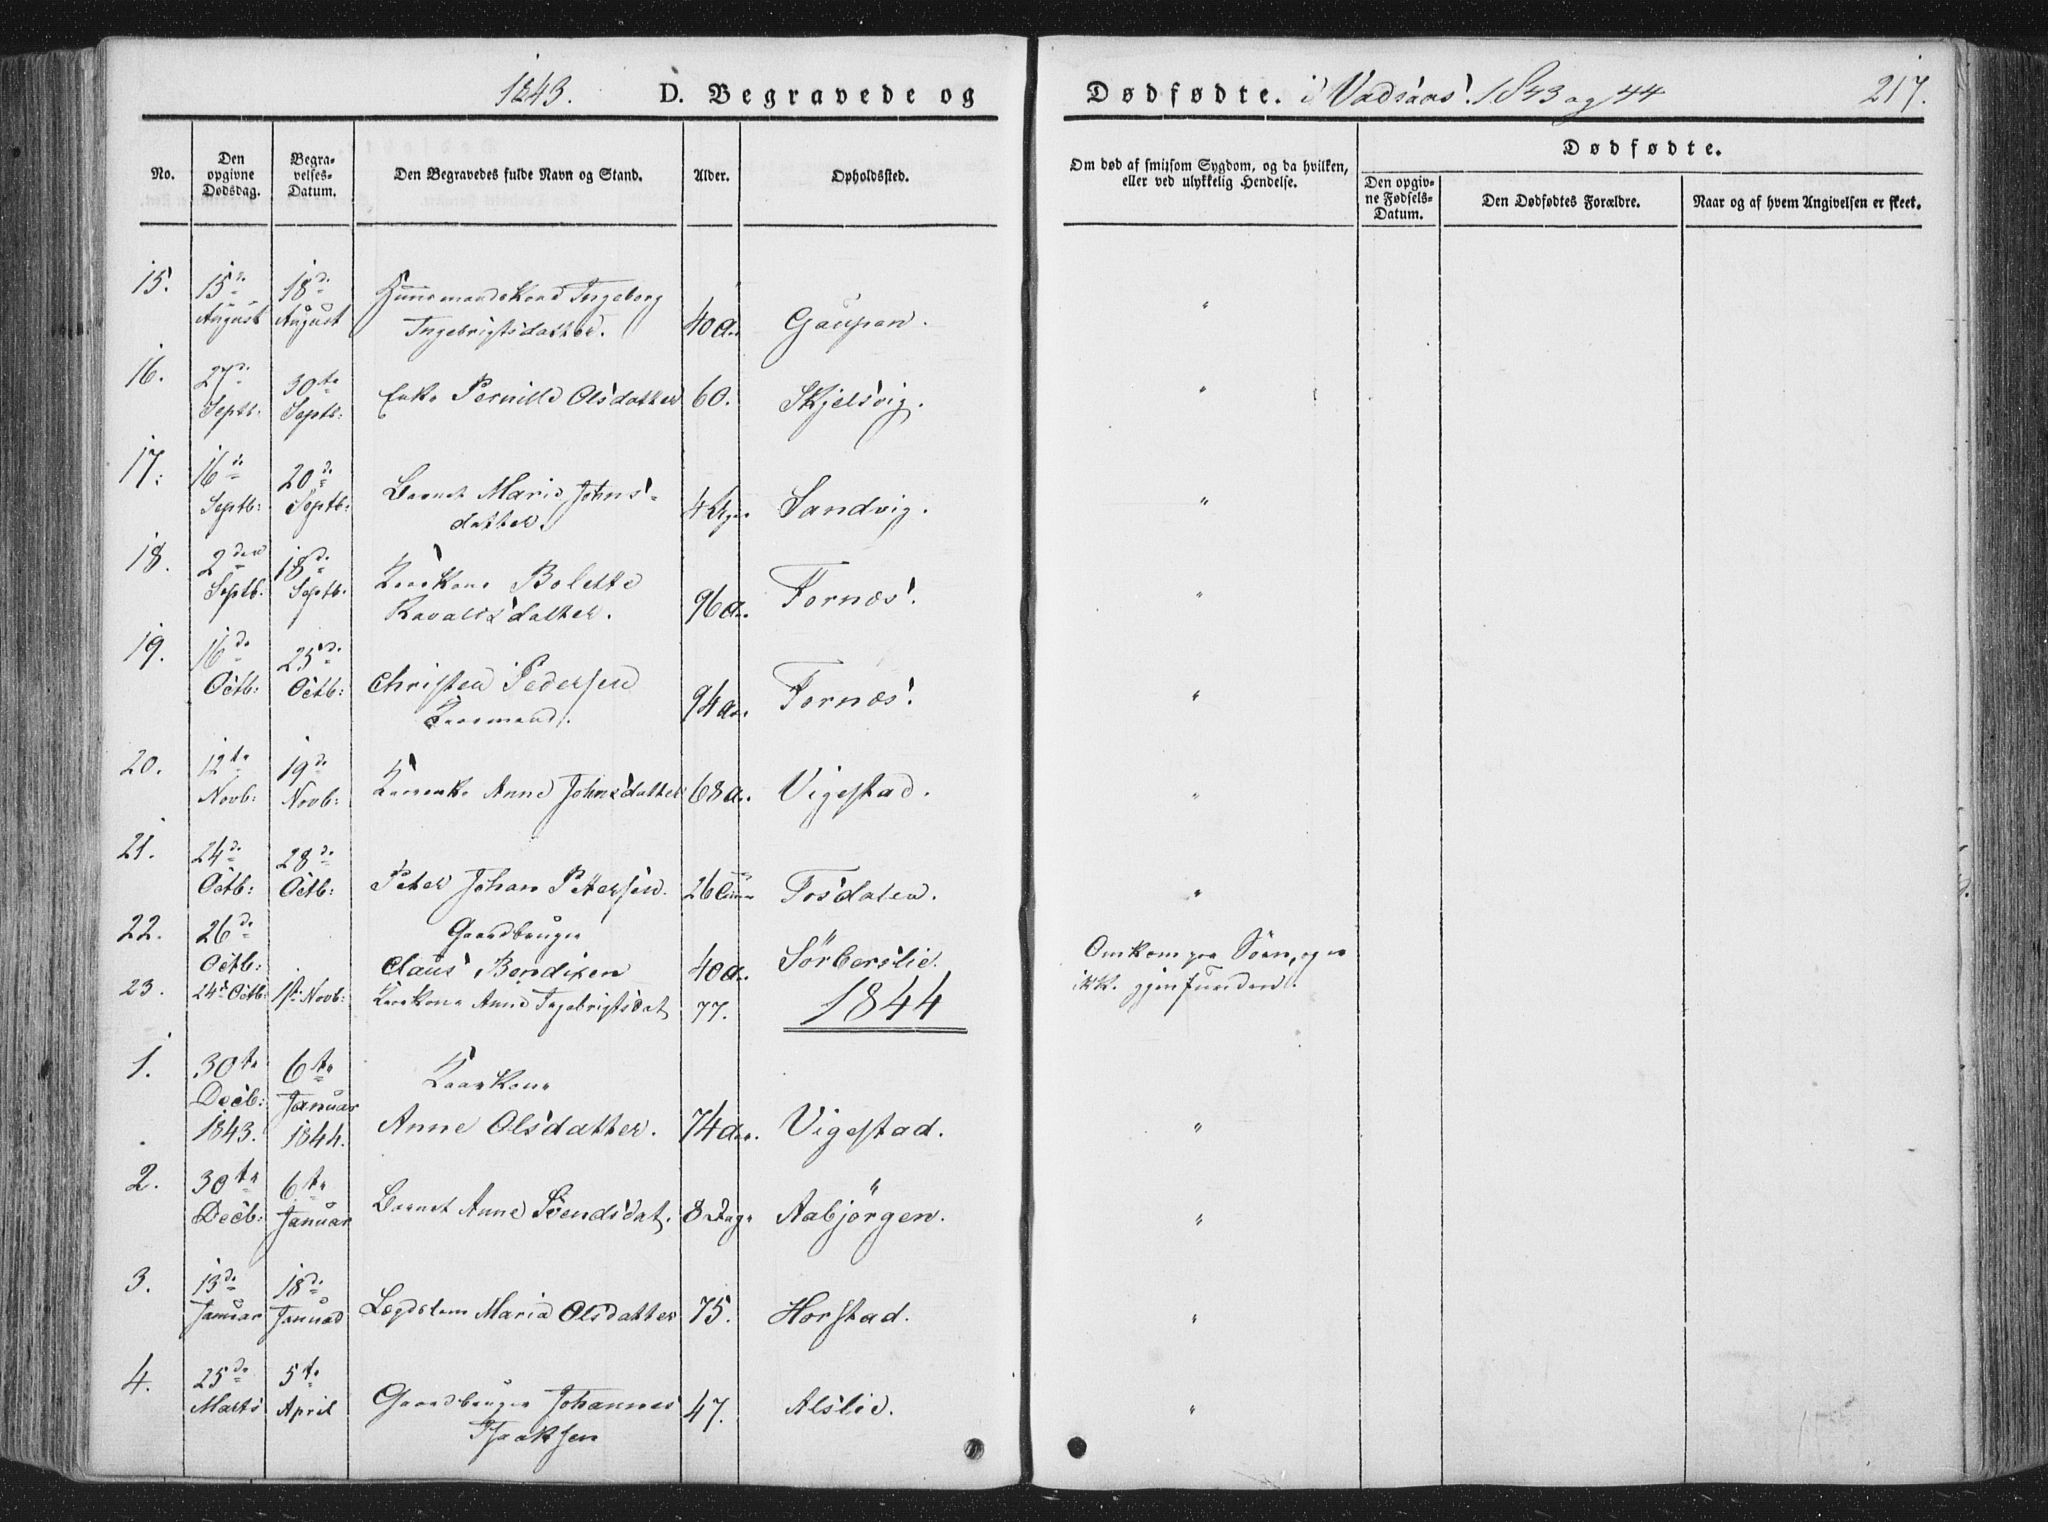 1843. D. Begravede og
Dødfødte. i Vadsaas 1843 og 44 217.
No.
Den opgivne Dødsdag.
Begravelses-Datum.
Den Begravedes fulde Navn og Stand.
Alder.
Opholdssted.
Om død af smitsom Sygdom, og da hvilken,
eller ved ulykkelig Hendelse.
Dødfødte.
Den opgivne Fødsels-Datum.
Den Dødfødtes Forældre.
Naar og af hvem Angivelsen er skeet.
15. 15de August 18de August Huusmandskone Ingeborg
Ingebrigtsdatter. 40 Gaupen. "
16. 27de Septb: 30te Septb: Enke Pernille Olsdatter 60. Skjelsvig. "
17. 16de Septb: 20de Septb: Barnet Marie Johns-
datter. 4 Sandvig. "
18. 2den Septb: 18de Septb: Kaarkone Bolette
96 Fornæs. "
19. 16de Octb: 25de Octb: Christen Pedersen
Kaarmand. 94 Fornæs. "
20. 12te Novb: 19de Novb: Kaarenke Anne Johnsdatter 68 Vigestad. "
21. 24de Octb: 28de Octb: Peter Johan Petersen. 26 Tosdalen. "
22. 26de Octb: Gaardbruger
Claus Bendixen 40 Sørberslie. Omkom paa Søen, og er
ikke gjenfunden.
23. 24de Octb: 1ste Novb: Kaarkone Anne Ingebrigtsdat 77.
1844
1. 30te Decb: 1843. 6te Januar 1844. Kaarkone
Anne Olsdatter. 74 Vigestad. "
2. 30te Decb: 6te Januar Barnet Anne Svendsdat. 8 Dage Aabjörgen. "
3. 13de Januar 18de Januar Lægdslem Maria Olsdatter 75. Horstad. "
4. 25de Marts 5te April Gaardbruger Johannes
Isaksen 47. Alslie. "